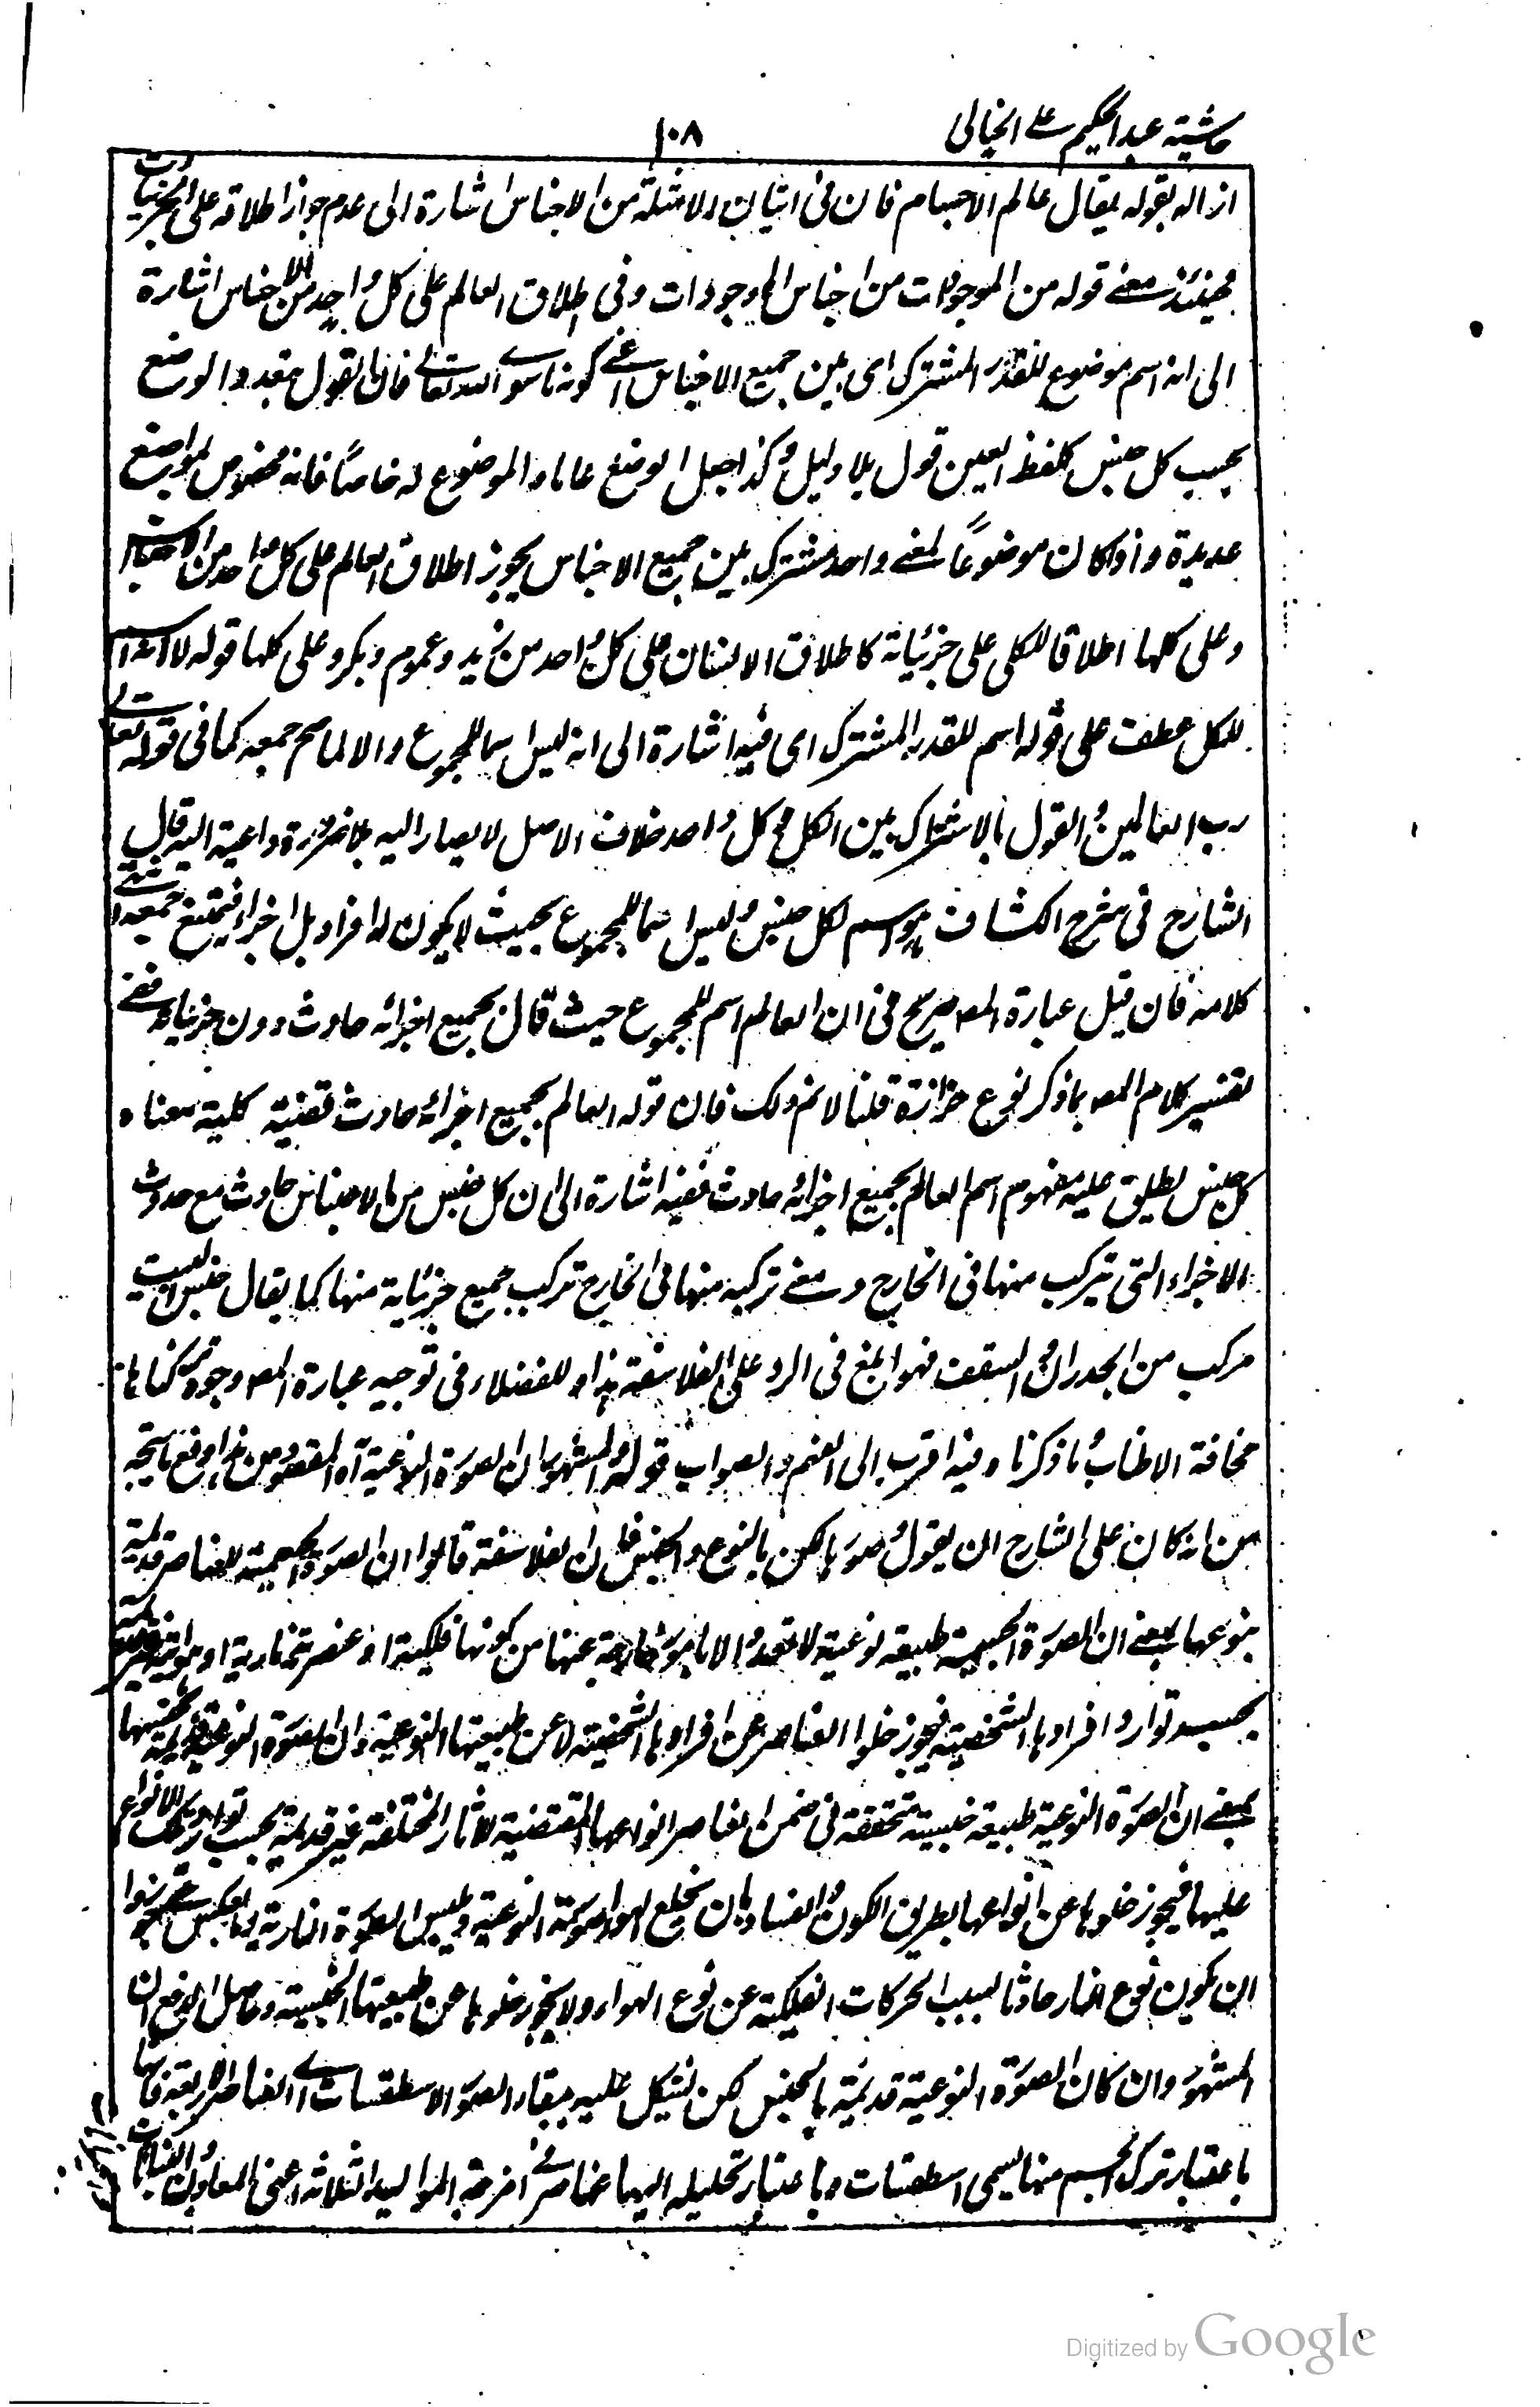 حاشية عبد الحكيم على الخيالى
١٠٨
ازاله بقوله يقال عالم الاجسام فان فى اتيان الامثلة من الاجناس اشارة الى عدم جواز اطلاقه على الجزئيات
فحينئذ معنى قوله من الموجودات من اجناس الموجودات وفى اطلاق العالم على كل واحد من الاجناس اشارة
الى انه اسم موضوع للقدر المشترك اى بين جميع الاجناس اعنى كونه ما سوى الله تعالى فان القول بتعدد الوضع
بحسب كل جنس كلفظ العين قول بلا دليل وكذا جعل الوضع عاما والموضوع له خاصًا فانه مخصوص بمواضع
عديدة واذا كان موضوعًا لمعنى واحد مشترك بين جميع الاجناس يجوز اطلاق العالم على كل واحد من الاجناس
وعلى كلها اطلاقا للكلى على جزئياته كاطلاق الانسان على كل واحد من زيد وعمرو وبكر وعلى كلها قوله لا انه اسم
للكل عطف على قوله اسم للقدر المشترك اى فيه اشارة الى انه ليس اسما للمجموع والا لما صح جمعه كما فى قوله تعالى
رب العالمين والقول بالاشتراك بين الكل وكل واحد خلاف الاصل لا يصار اليه بلا ضرورة داعية اليه قال
الشارح فى شرح الكشاف هو اسم لكل جنس وليس اسما للمجموع بحيث لا يكون له افراد بل اجزاء فيمتنع جمعه انتهى
كلامه فان قيل عبارة المصـ صريح فى ان العالم اسم للمجموع حيث قال بجميع اجزائه حادث دون جزئياته ففى
تفسير كلام المصـ بما ذكر نوع حزازة قلنا لا نم ذلك فان قوله العالم بجميع اجزائه حادث قضية كلية معناه
كل جنس يطلق عليه مفهوم اسم العالم بجميع اجزائه حادث ففيه اشارة الى ان كل جنس من الاجناس حادث مع حدوث
الاجزاء التى تتركب منها فى الخارج ومعنى تركبه منها فى الخارج تركب جميع جزئياته منها كما يقال جنس البيت
مركب من الجدران والسقف فهو ابلغ فى الرد على الفلاسفة هذا وللفضلاء فى توجيه عبارة المصـ وجوه تركناها
مخافة الاطناب وما ذكرنا وفيه اقرب الى الفهم والصواب قوله والمشهور ان الصورة النوعية آه المقصود من هذا دفع ما يتجه
من انه كان على الشارح ان يقول وصورها لكن بالنوع والجنس فان الفلاسفة قالوا ان الصورة الجسمية للعناصر قديمة
بنوعها بمعنى ان الصورة الجسمية طبيعة نوعية لا تتعدد الا بامور خارجة عنها من كونها فلكية او عنصرية نارية او هوائية
بحسب توارد افرادها الشخصية فيجوز خلو العناصر عن افرادها الشخصية لا عن طبيعتها النوعية وان الصورة النوعية قديمة بجنسها
بمعنى ان الصورة النوعية طبيعة جنسية متحققة فى ضمن العناصر انواعها المقتضية للآثار المختلفة غير قديمة بحسب توارد تلك الانواع
عليها فيجوز خلوها عن انواعها بطريق الكون والفساد بان يخلع الهواء صورته النوعية ويلبس الصورة النارية او بالعكس حتى جوزوا
ان يكون نوع النار حادثا بسبب الحركات الفلكية عن نوع الهواء ولا يجوز خلوها عن طبيعتها الجنسية وحاصل الدفع ان
المشهور وان كان الصورة النوعية قديمة بالجنس لكن يشكل عليه ببقاء الصور الاسطقسات اى العناصر الاربعة فانها
باعتبار تركب الجسم منها يسمى اسطقسات وباعتبار تحليله اليها عناصر فى امزجة المواليد الثلاثة اعنى المعادن والنباتات
Digitized by Google